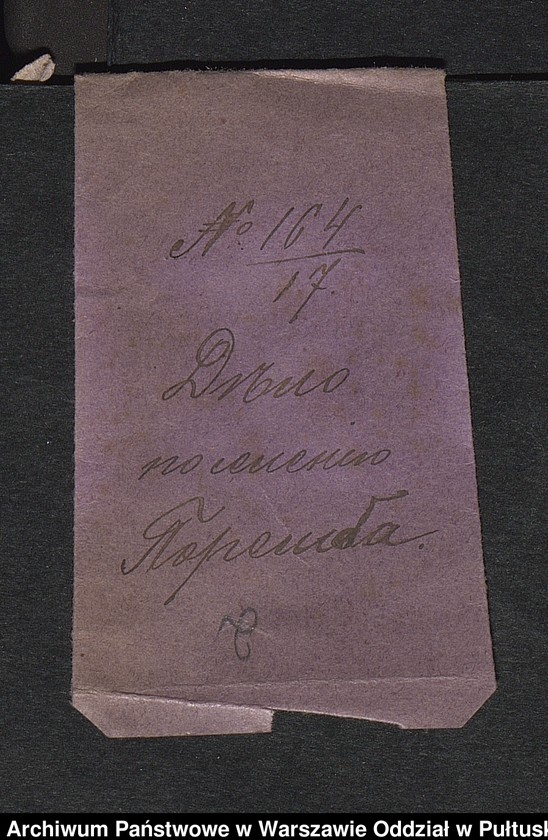 № 164
17.
Дѣло
по имѣнію
Поремба.
Archiwum Państwowe w Warszawie Oddział w Pułtusk